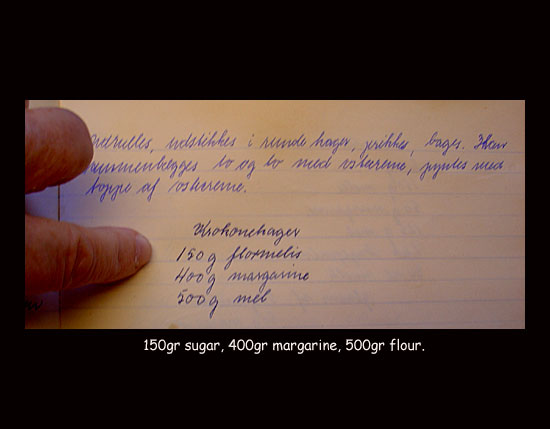 Udrulles, udstikkes i runde kager, prikkes, bages. Kan
ammenlægges to og to med ostecreme, pyntes med
toppe af ostecreme.
Krokonekager
150g flormelis
400g margarine
500g mel
150gr sugar, 400gr margarine, 500gr flour.